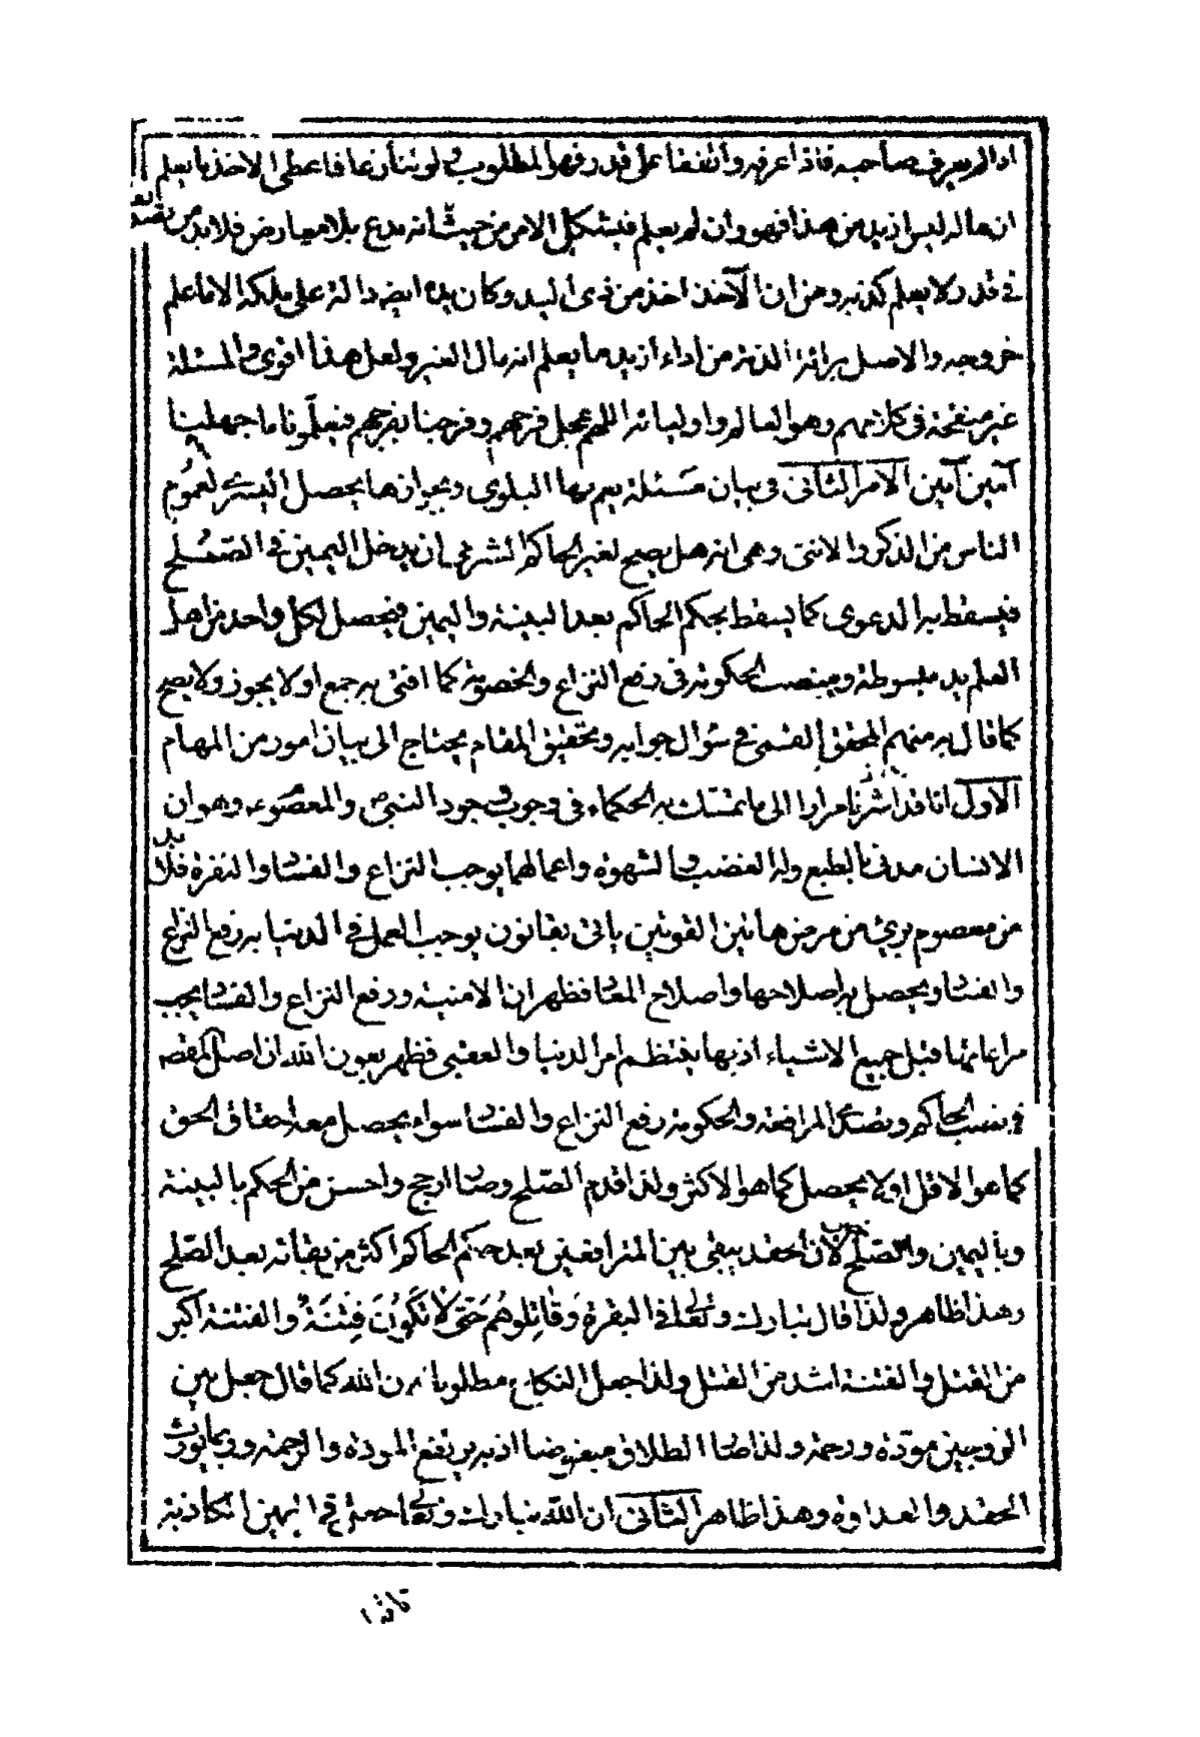 اذا لم يعرف صاحبه فاذا عرفه واتفقا على قدر فهو المطلوب ولو تنازعا فاعطى الاخذ ما يعلم
ان ماله ليس ازيد من هذا فهو وان لم يعلم فيشكل الامر من حيث انه مدع بلا معارض فلابد من تصديقه
في قدر لا يعلم كذبه ومن ان الآخذ اخذ من ذى اليد وكان يده ايضا دالة على ملكه الا ما علم
خروجه والاصل برائة الذمة من اداء ازيد ما يعلم انه مال الغير ولعل هذا اقوى والمسئلة
غير منقحة في كلاتهم وهو العالم واوليائه اللهم عجل فرجهم وفرجنا بفرجهم فيعلّمونا ما جهلنا
آمين آمين الامر الثانى في بيان مسئلة يعم بها البلوى وبجوازها يحصل اليسر لعموم
الناس من الذكر والانثى وهى انه هل يصح لغير الحاكم الشرعى ان يدخل اليمين في الصّلح
فيسقط به الدعوى كما يسقط بحكم الحاكم بعد البينة واليمين فيحصل لكل واحد من اهل
العلم يد مبسوطة ومنصب الحكومة فى رفع النزاع والخصومة كما افتى به جمع او لا يجوز ولا يصح
كما قال به منهم المحقق القمى في سؤال جوابه وتحقيق المقام يحتاج الى بيان امور من المهام
الاول انا قد اشرنا مرارا الى ما تمسّك به الحكماء فى وجوب وجود النبى ص والمعصوم ع وهو ان
الانسان مدنى بالطبع وله الغضب والشهوة واعمالهما يوجب النزاع والفسا والنفرة فلابد
من معصوم برئ من مرض هاتين القوتين ياتى بقانون يوجب العمل في الدنيا به رفع النزاع
والفسا ويحصل به اصلاحها واصلاح المعا فظهر ان الامنية ورفع النزاع والفسا يجب
مراعاتها قبل جميع الاشياء اذ بها ينتظم امر الدنيا والعقبى فظهر بعون الله ان اصل المقصد
في نصب الحاكم وتصدّى المرافعة والحكومة رفع النزاع والفسا سواء يحصل معه احقاق الحق
كما هو الاقل او لا يحصل كما هو الاكثر ولذا قدم الصّلح وصا ارجح واحسن من الحكم بالبينة
وباليمين والصّلح خير لان الحقد يبقى بين المترافعين بعد حكم الحاكم اكثر من بقائه بعد الصّلح
وهذا ظاهر ولذا قال تبارك وتعالى في البقرة وَقٰاتِلوهُم حَتىّ لا تَكُونَ فِتْنَةٌ والفتنة اكبر
من القتل والفتنة اشد من القتل ولذا جعل النكاح مطلوبا من الله كما قال جعل بين
الزوجين مودّة ورحمة ولذا صا الطلاق مبغوضا اذ به يرتفع المودة والرحمة وربما يورث
الحقد والعداوة وهذا ظاهر الثانى ان الله تبارك وتعالى في اليمين الكاذبة